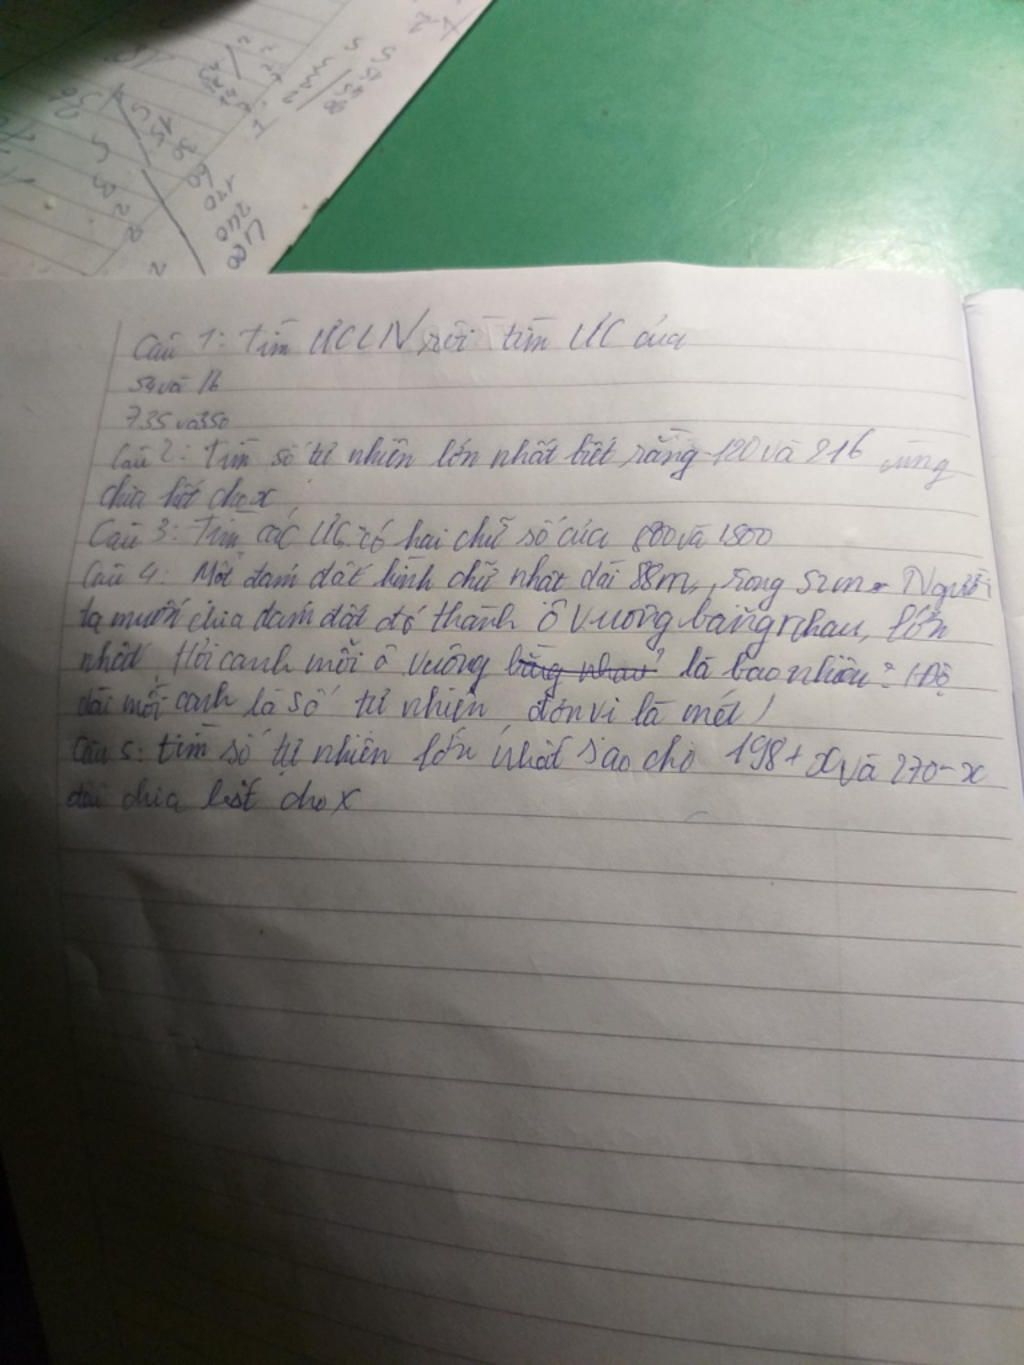 Câu 1: Tìm ƯCLN rồi tìm ƯC của
54 và 16
735 và 350
Câu 2: Tìm số tự nhiên lớn nhất biết rằng 120 và 216 cùng
chia hết cho x
Câu 3: Tìm các ƯC có hai chữ số của 800 và 1800
Câu 4: Một đám đất hình chữ nhật dài 88m, rộng Người
ta muốn chia đám đất đó thành ô vuông bằng nhau, lớn
nhất. Hỏi cạnh mỗi ô vuông là bao nhiêu? (Độ
dài mỗi cạnh là số tự nhiên đơn vị là mét)
Câu 5: tìm số tự nhiên lớn nhất sao cho 198 + x và 270 - x
đều chia hết cho x
15
30
60
120
240